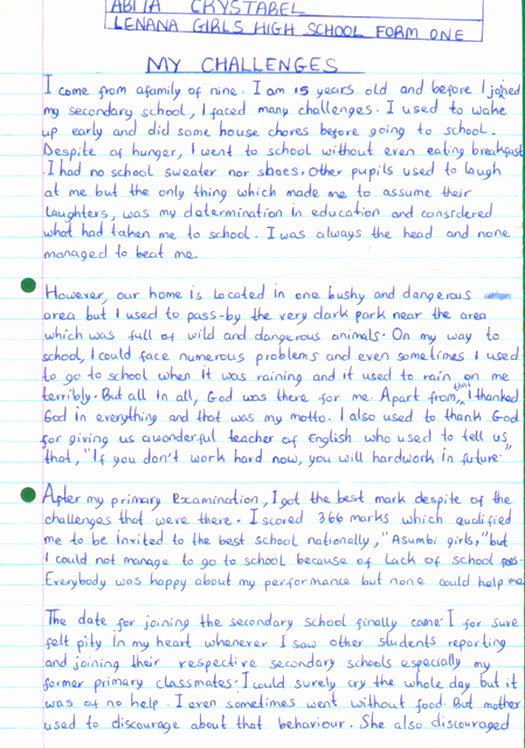 ABITA CRYSTABEL
LENANA GIRLS HIGH SCHOOL FORM ONE
MY CHALLENGES
I come from afamily of nine. I am 15 years old and before I joined
my secondary school, I faced many challenges. I used to wake
up early and did some house chores before going to school.
Despite of hunger, I went to school without even eating breakfast
.I had no school sweater nor shoes. Other pupils used to laugh
at me but the only thing which made me to assume their
laughters, was my determination in education and considered
what had taken me to school. I was always the head and none
managed to beat me.
However, our home is located in one bushy and dangerous
area but I used to pass-by the very dark park near the area
which was full of wild and dangerous animals. On my way to
school, I could face numerous problems and even sometimes I used
to go to school when it was raining and it used to rain on me
terribly. But all in all, God was there for me. Apart from that I thanked
God in everything and that was my motto. I also used to thank God
for giving us awonderful teacher of English who used to tell us
that, "If you don't work hard now, you will hardwork in future"
After my primary Examination, I got the best mark despite of the
challenges that were there. I scored 366 marks which qualified
me to be invited to the best school nationally, "Asumbi girls," but
I could not manage to go to school because of lack of school fees.
Everybody was happy about my performance but none could help me
The date for joining the secondary school finally came. I for sure
felt pity in my heart whenever I saw other students reporting
and joining their respective secondary schools especially my
former primary classmates. I could surely cry the whole day but it
was of no help. I even sometimes went without food. But mother
used to discourage about that behaviour. She also discouraged